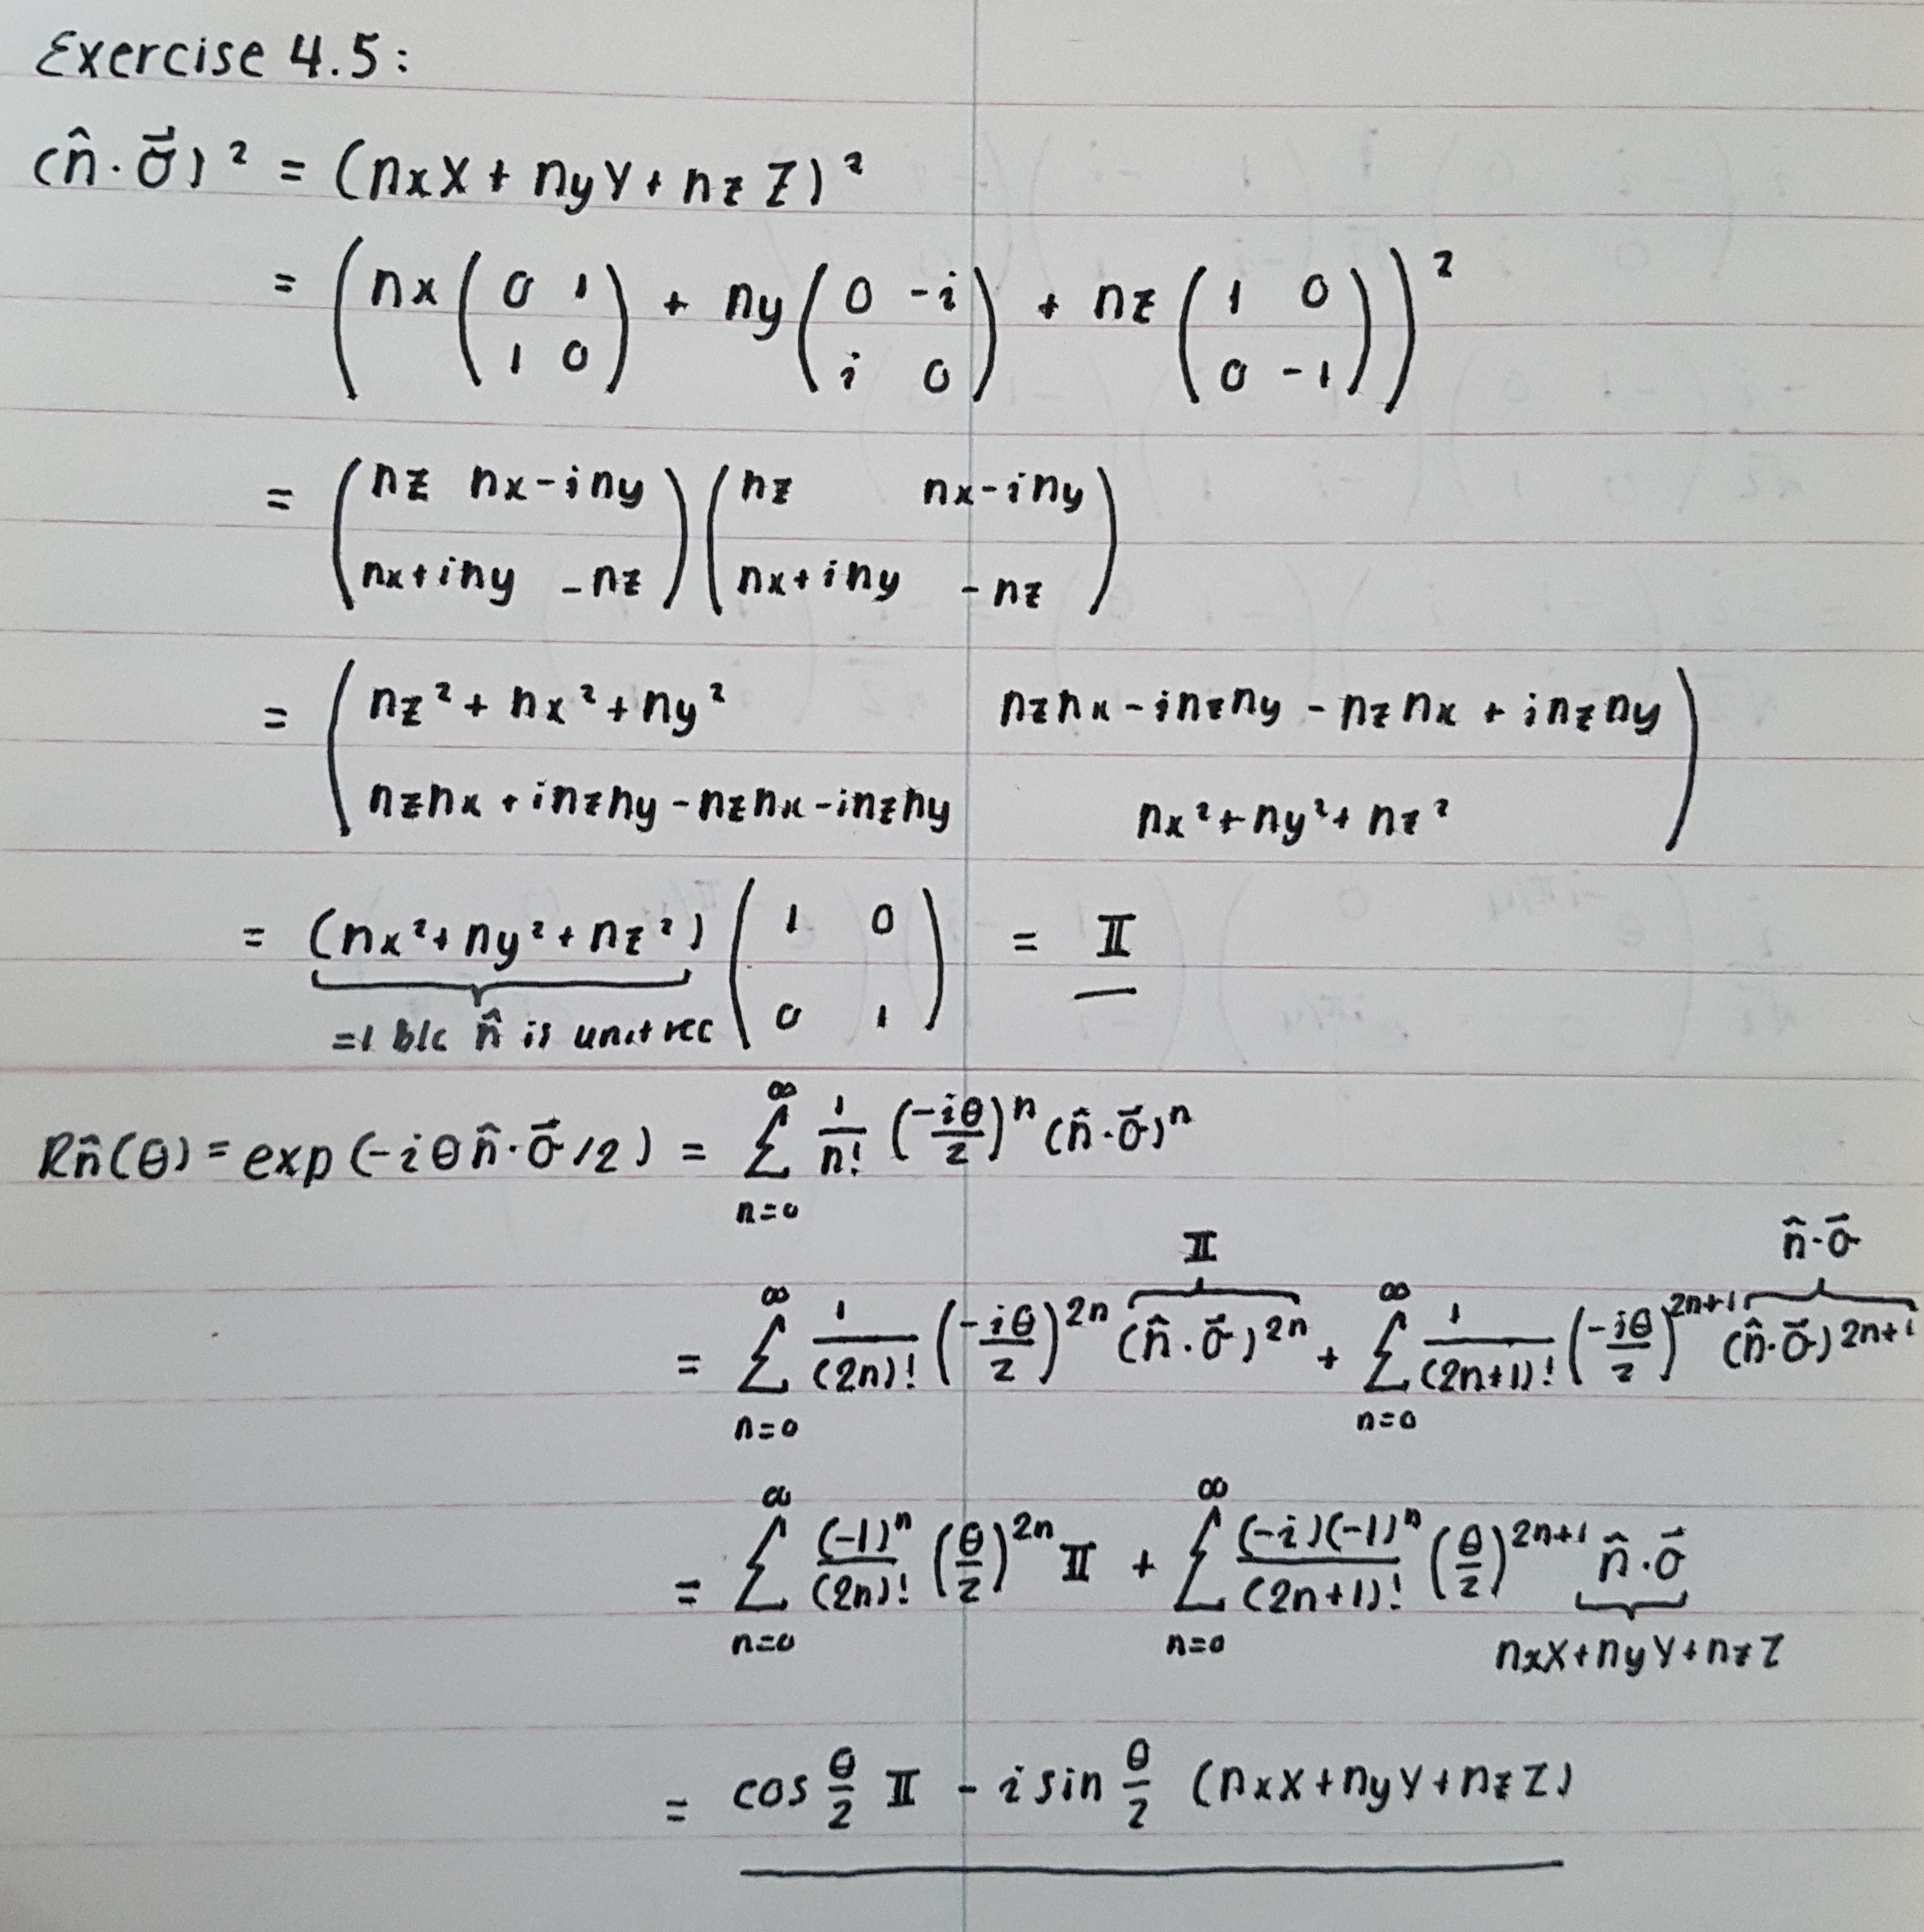 Exercise 4.5:
(n̂·σ⃗)² = (nxX + nyY + nzZ)²
= (nx (0 1; 1 0) + ny (0 -i; i 0) + nz (1 0; 0 -1))²
= (nz nx-iny; nx+iny -nz) (nz nx-iny; nx+iny -nz)
= (nz²+nx²+ny² nznx-inzny-nznx+inzny; nznx+inzny-nznx-inzny nx²+ny²+nz²)
= (nx²+ny²+nz²) (1 0; 0 1) = II
=1 b/c n̂ is unit vec
Rn̂(θ) = exp(-iθn̂·σ⃗/2) = ∑_{n=0}^{∞} 1/n! (-iθ/2)^n (n̂·σ⃗)^n
II n̂·σ⃗
= ∑_{n=0}^{∞} 1/(2n)! (-iθ/2)^{2n} (n̂·σ⃗)^{2n} + ∑_{n=0}^{∞} 1/(2n+1)! (-iθ/2)^{2n+1} (n̂·σ⃗)^{2n+1}
= ∑_{n=0}^{∞} (-1)^n/(2n)! (θ/2)^{2n} II + ∑_{n=0}^{∞} (-i)(-1)^n/(2n+1)! (θ/2)^{2n+1} n̂·σ⃗
nxX+nyY+nzZ
= cos θ/2 II - i sin θ/2 (nxX+nyY+nzZ)